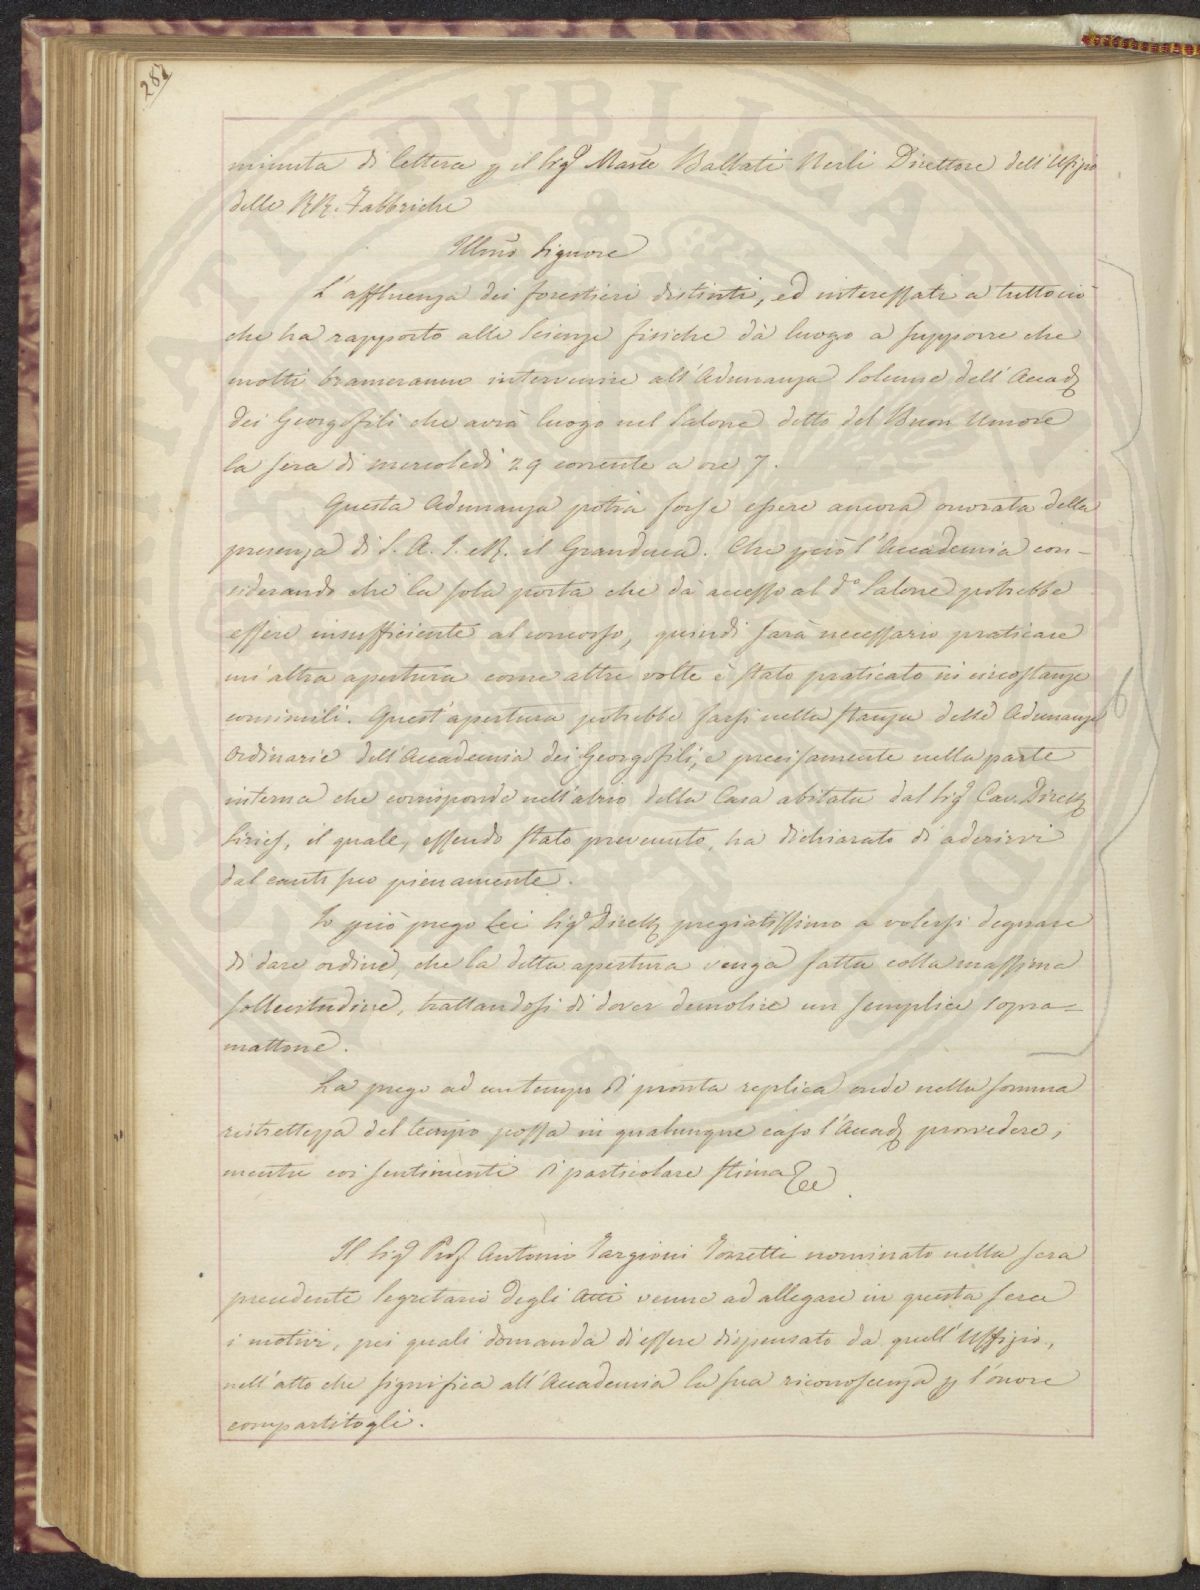 282
minuta di lettera p il Sigr March Ballati Nerli Direttore dell'Ufizio
delle RR. Fabbriche
Illmo Signore
L'affluenza dei forestieri distinti, ed interessati a tutto ciò
che ha rapporto alle Scienze fisiche dà luogo a supporre che
molti brameranno intervenire all'Adunanza Solenne dell'Accada
dei Georgofili che avrà luogo nel Salone detto del Buon Umore
la sera di mercoledì 29 corrente a ore 7.
Questa Adunanza potrà forse essere ancora onorata della
presenza di S. A. I. e R. il Granduca. Che però l'Accademia con-
siderando che la sola porta che dà accesso al do Salone potrebbe
essere insufficiente al concorso, quindi sarà necessario praticare
un'altra apertura come altre volte è stato praticato in circostanze
consimili. Quest'apertura potrebbe farsi nella stanza delle Adunanze
Ordinarie dell'Accademia dei Georgofili, e precisamente nella parte
interna che corrisponde nell'atrio della Casa abitata dal Sigr Cav. Dirett
Siries, il quale, essendo stato prevenuto, ha dichiarato di aderirvi
dal canto suo pienamente.
Io però prego Lei Sigr Dirett pregiatissimo a volersi degnare
di dare ordine, che la detta apertura venga fatta colla massima
sollecitudine, trattandosi di dover demolire un semplice sopra=
mattone.
La prego ad un tempo di pronta replica onde nella somma
ristrettezza del tempo possa in qualunque caso l'Accada provvedere,
mentre coi sentimenti di particolare stima &c.
Il Sigr Prof Antonio Targioni Tozzetti nominato nella sera
precedente Segretario degli Atti venne ad allegare in questa sera
i motivi, pei quali domanda di essere dispensato da quell'Uffizio,
nell'atto che significa all'Accademia la sua riconoscenza p l'onore
compartitogli.